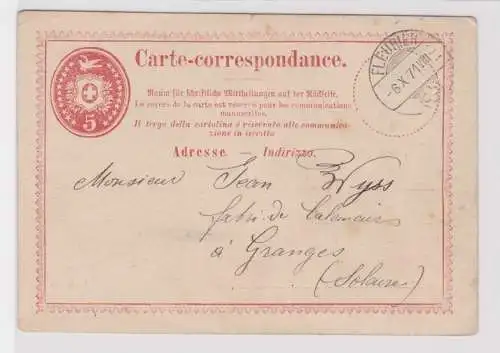 Carte-correspondance.
FLEURIER
-6.X.71.VIII
5
Raum für schriftliche Mittheilungen auf der Rückseite.
Le revers de la carte est réservé pour les communications
manuscrites.
Il tergo della cartolina è riservato alle communica-
zione in iscritto
Adresse. — Indirizzo.
Monsieur Jean Wyss
fabr. de
à Granges
(Soleure)